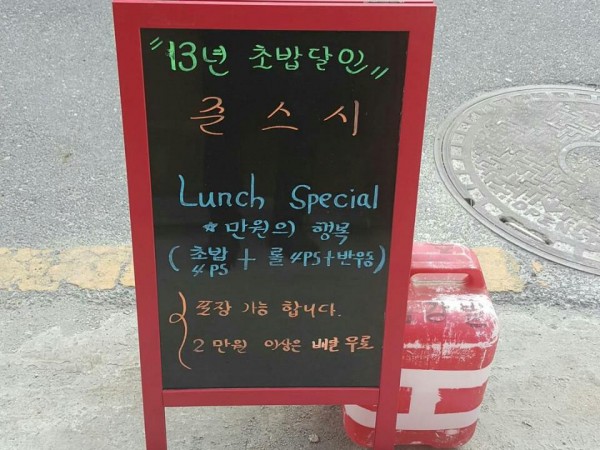 "13년 초밥달인"
즌 스 시
Lunch Special
★만원의 행복
(초밥 4PS + 롤 4PS+반우동)
포장 가능 합니다.
2만원 이상은 배달 무료